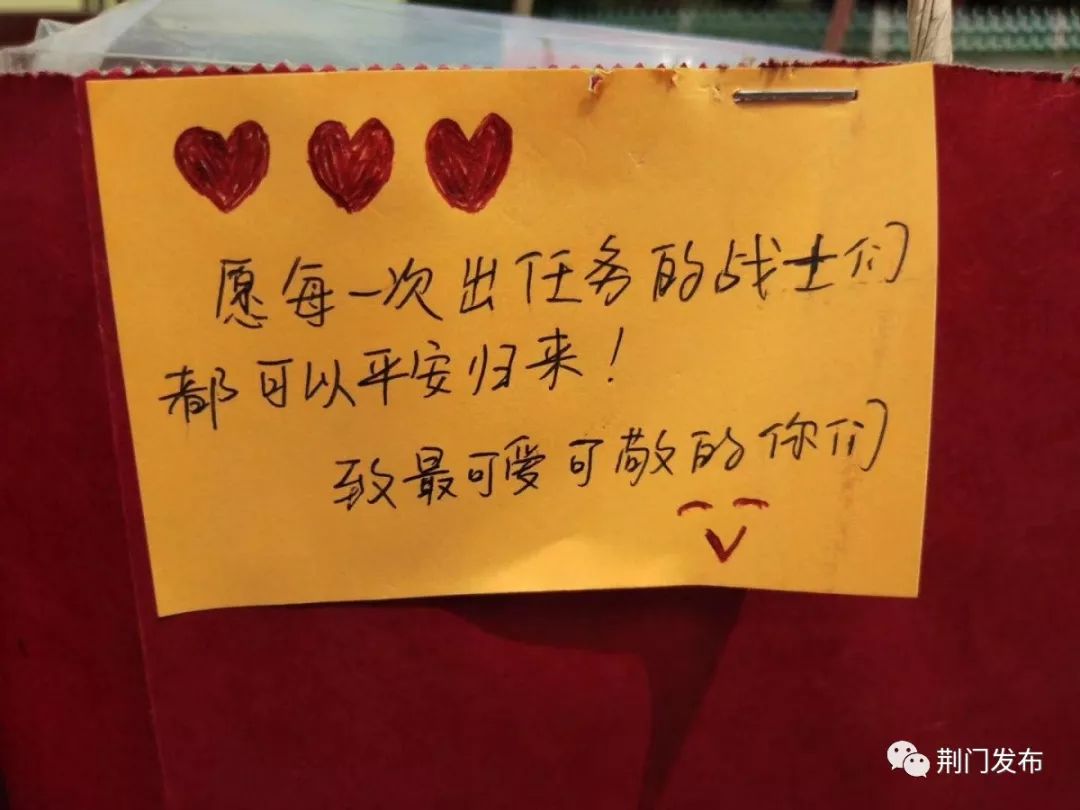 愿每一次出任务的战士们
都可以平安归来！
致最可爱可敬的你们
荆门发布